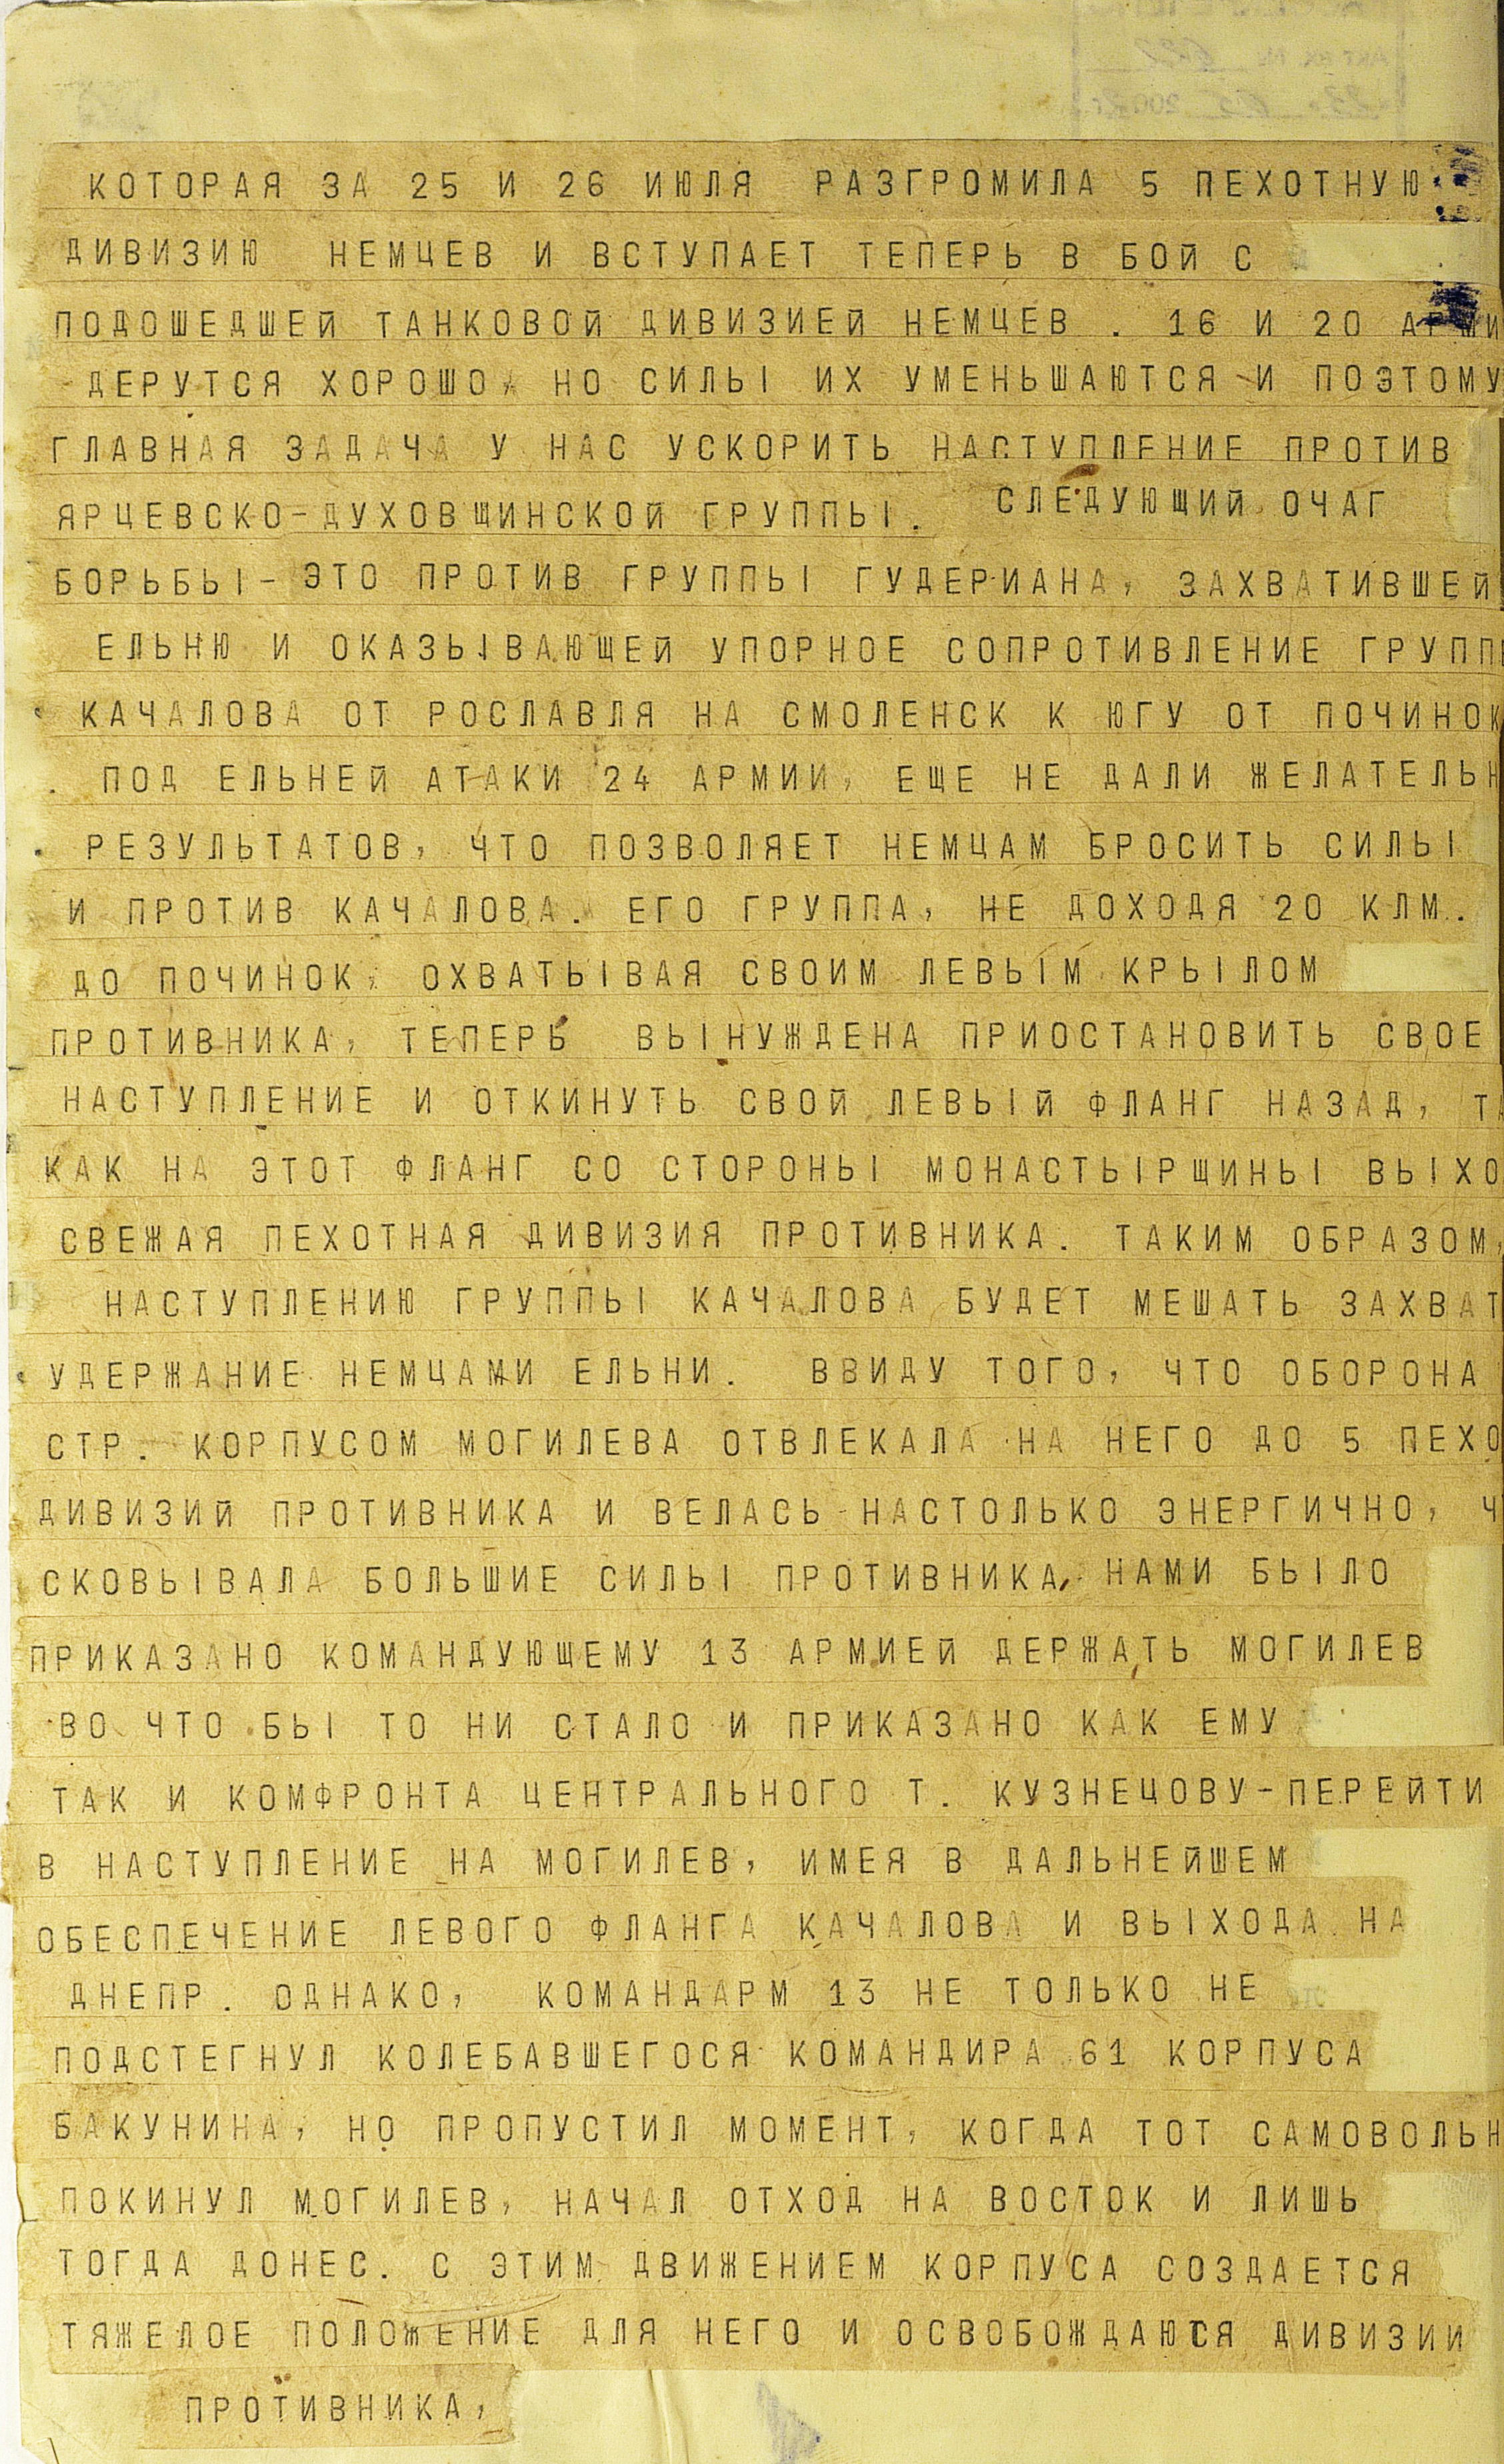 КОТОРАЯ ЗА 25 И 26 ИЮЛЯ РАЗГРОМИЛА 5 ПЕХОТНУЮ
ДИВИЗИЮ НЕМЦЕВ И ВСТУПАЕТ ТЕПЕРЬ В БОЙ С
ПОДОШЕДШЕЙ ТАНКОВОЙ ДИВИЗИЕЙ НЕМЦЕВ . 16 И 20 АРМИ
ДЕРУТСЯ ХОРОШО, НО СИЛЫ ИХ УМЕНЬШАЮТСЯ И ПОЭТОМУ
ГЛАВНАЯ ЗАДАЧА У НАС УСКОРИТЬ НАСТУПЛЕНИЕ ПРОТИВ
ЯРЦЕВСКО-ДУХОВЩИНСКОЙ ГРУППЫ. СЛЕДУЮЩИЙ ОЧАГ
БОРЬБЫ- ЭТО ПРОТИВ ГРУППЫ ГУДЕРИАНА, ЗАХВАТИВШЕЙ
ЕЛЬНЮ И ОКАЗЫВАЮЩЕЙ УПОРНОЕ СОПРОТИВЛЕНИЕ ГРУПП
КАЧАЛОВА ОТ РОСЛАВЛЯ НА СМОЛЕНСК К ЮГУ ОТ ПОЧИНОК
. ПОД ЕЛЬНЕЙ АТАКИ 24 АРМИИ, ЕЩЕ НЕ ДАЛИ ЖЕЛАТЕЛЬН
РЕЗУЛЬТАТОВ, ЧТО ПОЗВОЛЯЕТ НЕМЦАМ БРОСИТЬ СИЛЫ
И ПРОТИВ КАЧАЛОВА. ЕГО ГРУППА, НЕ ДОХОДЯ 20 КЛМ.
ДО ПОЧИНОК, ОХВАТЫВАЯ СВОИМ ЛЕВЫМ КРЫЛОМ
ПРОТИВНИКА, ТЕПЕРЬ ВЫНУЖДЕНА ПРИОСТАНОВИТЬ СВОЕ
НАСТУПЛЕНИЕ И ОТКИНУТЬ СВОЙ ЛЕВЫЙ ФЛАНГ НАЗАД, ТА
КАК НА ЭТОТ ФЛАНГ СО СТОРОНЫ МОНАСТЫРЩИНЫ ВЫХО
СВЕЖАЯ ПЕХОТНАЯ ДИВИЗИЯ ПРОТИВНИКА. ТАКИМ ОБРАЗОМ,
НАСТУПЛЕНИЮ ГРУППЫ КАЧАЛОВА БУДЕТ МЕШАТЬ ЗАХВАТ
УДЕРЖАНИЕ НЕМЦАМИ ЕЛЬНИ. ВВИДУ ТОГО, ЧТО ОБОРОНА
СТР. КОРПУСОМ МОГИЛЕВА ОТВЛЕКАЛА НА НЕГО ДО 5 ПЕХО
ДИВИЗИЙ ПРОТИВНИКА И ВЕЛАСЬ НАСТОЛЬКО ЭНЕРГИЧНО, Ч
СКОВЫВАЛА БОЛЬШИЕ СИЛЫ ПРОТИВНИКА, НАМИ БЫЛО
ПРИКАЗАНО КОМАНДУЮЩЕМУ 13 АРМИЕЙ ДЕРЖАТЬ МОГИЛЕВ
ВО ЧТО БЫ ТО НИ СТАЛО И ПРИКАЗАНО КАК ЕМУ
ТАК И КОМФРОНТА ЦЕНТРАЛЬНОГО Т. КУЗНЕЦОВУ-ПЕРЕЙТИ
В НАСТУПЛЕНИЕ НА МОГИЛЕВ, ИМЕЯ В ДАЛЬНЕЙШЕМ
ОБЕСПЕЧЕНИЕ ЛЕВОГО ФЛАНГА КАЧАЛОВА И ВЫХОДА НА
ДНЕПР. ОДНАКО, КОМАНДАРМ 13 НЕ ТОЛЬКО НЕ
ПОДСТЕГНУЛ КОЛЕБАВШЕГОСЯ КОМАНДИРА 61 КОРПУСА
БАКУНИНА, НО ПРОПУСТИЛ МОМЕНТ, КОГДА ТОТ САМОВОЛЬН
ПОКИНУЛ МОГИЛЕВ, НАЧАЛ ОТХОД НА ВОСТОК И ЛИШЬ
ТОГДА ДОНЕС. С ЭТИМ ДВИЖЕНИЕМ КОРПУСА СОЗДАЕТСЯ
ТЯЖЕЛОЕ ПОЛОЖЕНИЕ ДЛЯ НЕГО И ОСВОБОЖДАЮТСЯ ДИВИЗИИ
ПРОТИВНИКА,